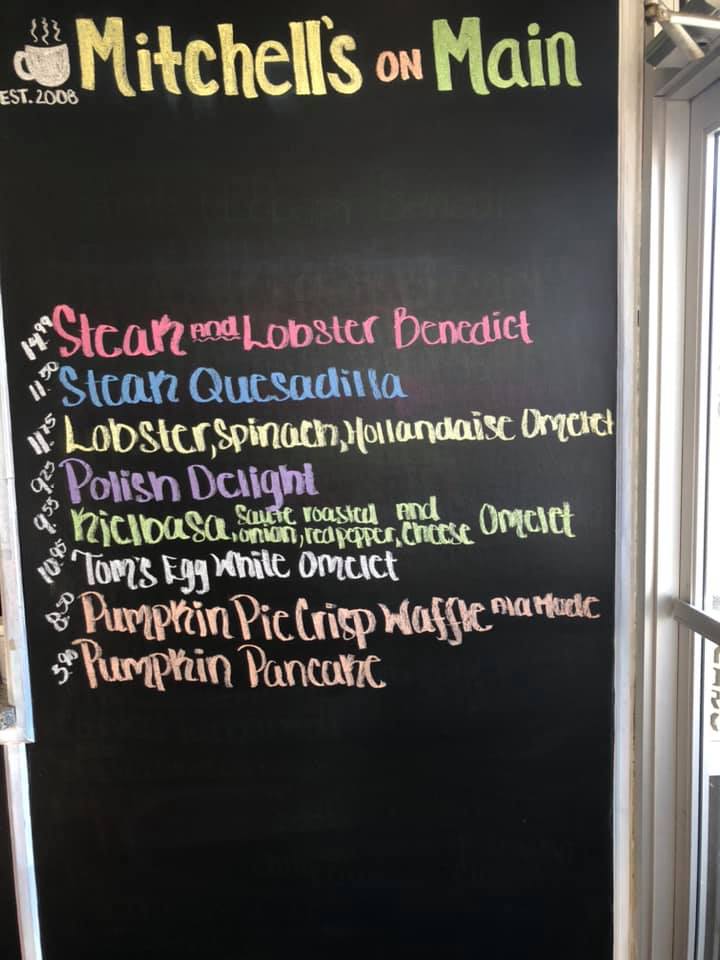 Mitchell's on Main
EST. 2008
14.99 Steak and Lobster Benedict
11.50 Steak Quesadilla
Lobster, Spinach, Hollandaise Omelet
9.25 Polish Delight
9.55 Kielbasa, saute onion, roasted red pepper, and cheese Omelet
10.95 Tom's Egg White Omelet
8.50 Pumpkin Pie Crisp Waffle Ala Mode
3.90 Pumpkin Pancake